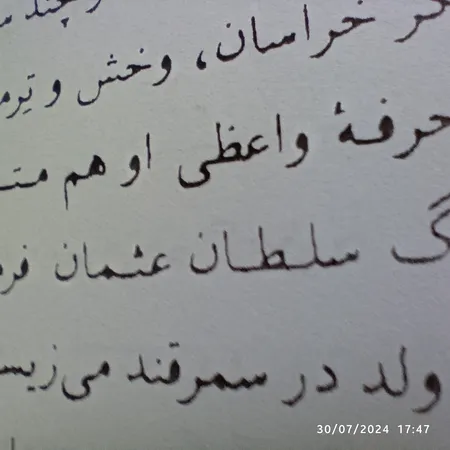 خراسان، وخش و ترمذ
حرفهٔ واعظی او هم
سلطان عثمان
ولد در سمرقند می‌زیس
30/07/2024 17:47